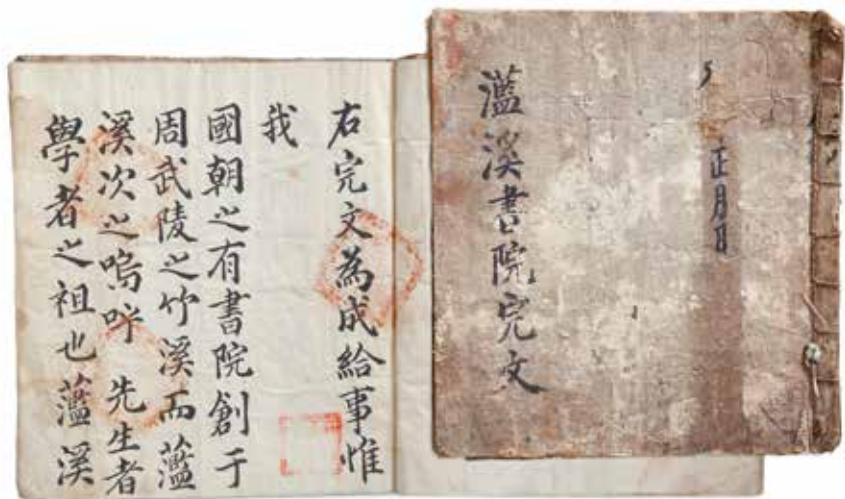 正月日
灆溪書院完文
右完文為成給事惟
我
國朝之有書院創于
周武陵之竹溪而蘫
溪次之嗚呼 先生者
學者之祖也蘫溪